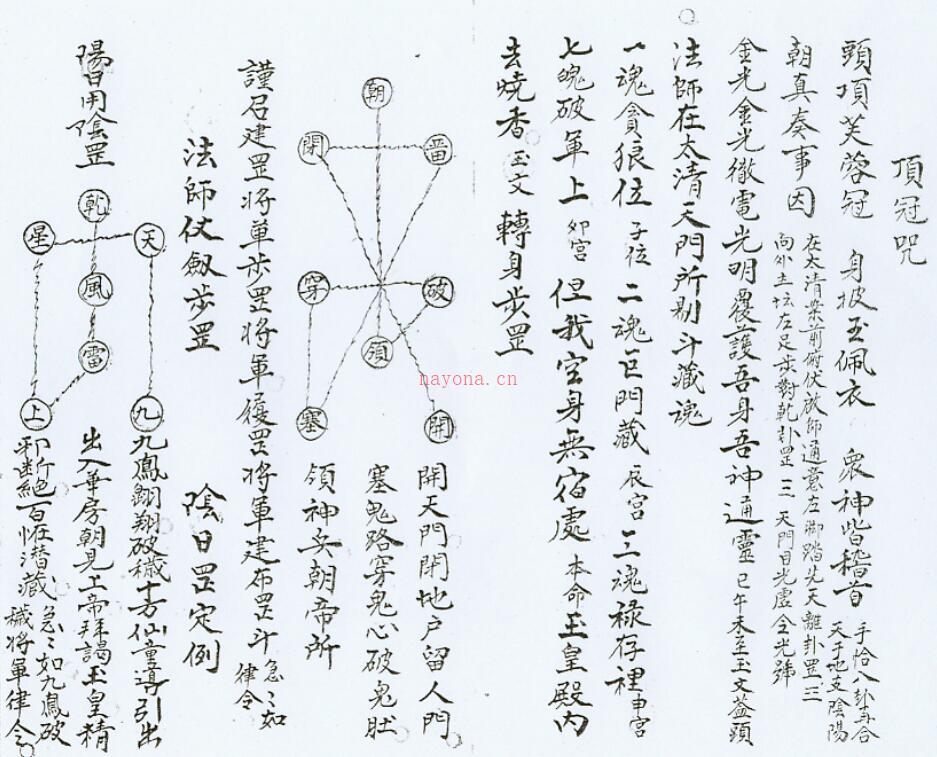 頂冠咒
頭頂芙蓉冠 身披玉佩衣 衆神皆稽首 手恰八卦再合天干地支陰陽
朝真奏事因 在太清案前俯伏放師通意左脚踏先天離卦罡三向外主坛左足步對乾卦罡三 天門日光盧令光號
金光金光徹電光明覆護吾身吾神通靈 巳午未至玉文蓋頭
法師在太清天門所剔斗藏魂
一魂貪狼位 子位 二魂巨門藏 辰宮 三魂祿存裡 申宮
七魄破軍上 卯宮 但我空身無宿處 本命玉皇殿内
去燒香 玉文 轉身步罡
朝
閉
留
穿
破
須
塞
開
開天門閉地户留人門
塞鬼路穿鬼心破鬼肚
領神兵朝帝所
謹召建罡將軍步罡將軍履罡將軍建布罡斗 急〻如律令
法師仗劔步罡 陰日罡定例
陽日用陰罡
乾
星
天
風
雷
上
九
九鳳翺翔破穢十方仙童導引出
出入華房朝見上帝拜謁玉皇精
邪断迷絕百怪潜藏 急〻如九鳳破穢將軍律令
nayona.cn